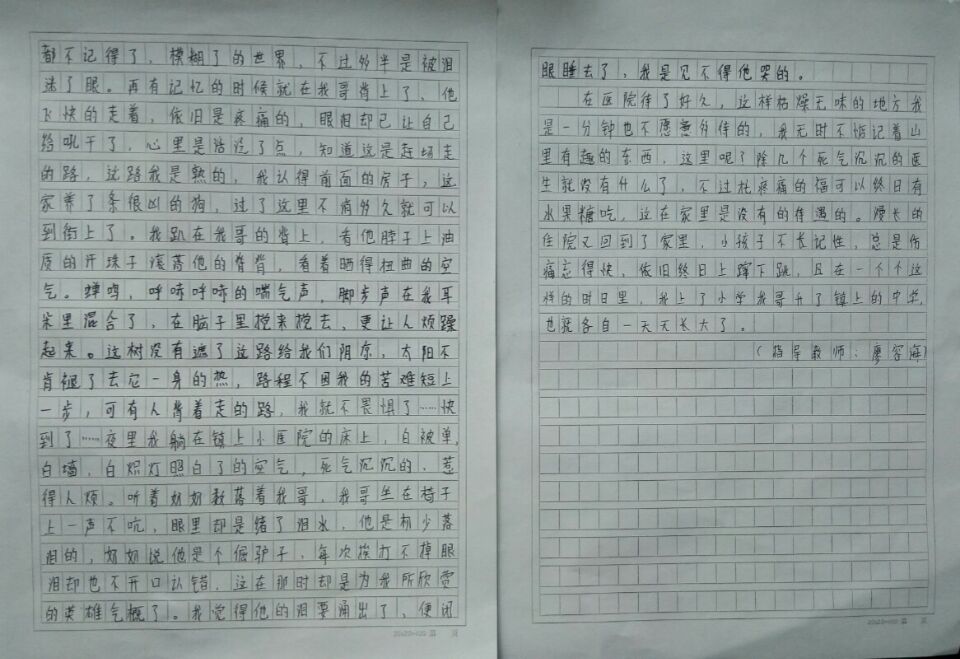 都不记得了，模糊了的世界，不过多半是被泪
迷了眼。再有记忆的时候就在我哥背上了，他
飞快的走着，依旧是疼痛的，眼泪却已让自己
给吼干了，心里是活泛了点，知道这是赶场走
的路，这路我是熟的，我认得前面的房子，这
家养了条很凶的狗，过了这里不消多久就可以
到街上了。我趴在我哥的背上，看他脖子上油
质的汗珠子滚落他的脊背，看着晒得扭曲的空
气。蝉鸣，呼哧呼哧的喘气声，脚步声在我耳
朵里混合了，在脑子里搅来搅去，更让人烦躁
起来。这树没有遮了这路给我们阴凉，太阳不
肯褪了去它一身的热，路程不因我的苦难短上
一步，可有人背着走的路，我就不畏惧了……快
到了……夜里我躺在镇上小医院的床上，白被单，
白墙，白炽灯照白了的空气，死气沉沉的，惹
得人烦。听着奶奶数落着我哥，我哥坐在椅子
上一声不吭，眼里却是绪了泪水，他是极少落
泪的，奶奶说他是个倔驴子，每次挨打不掉眼
泪却也不开口认错，这在那时却是为我所欣赏
的英雄气概了。我觉得他的泪要涌出了，便闭
20×20=400 第 页
眼睡去了，我是见不得他哭的。
在医院待了好久，这样枯燥无味的地方我
是一分钟也不愿意多待的，我无时不惦记着山
里有趣的东西，这里呢？除几个死气沉沉的医
生就没有什么了，不过托疼痛的福可以终日有
水果糖吃，这在家里是没有的待遇的。漫长的
住院又回到了家里，小孩子不长记性，总是伤
痛忘得快，依旧终日上蹿下跳，且在一个个这
样的时日里，我上了小学我哥升了镇上的中学，
也就各自一天天长大了。
（指导教师：廖容海）
20×20=400 第 页